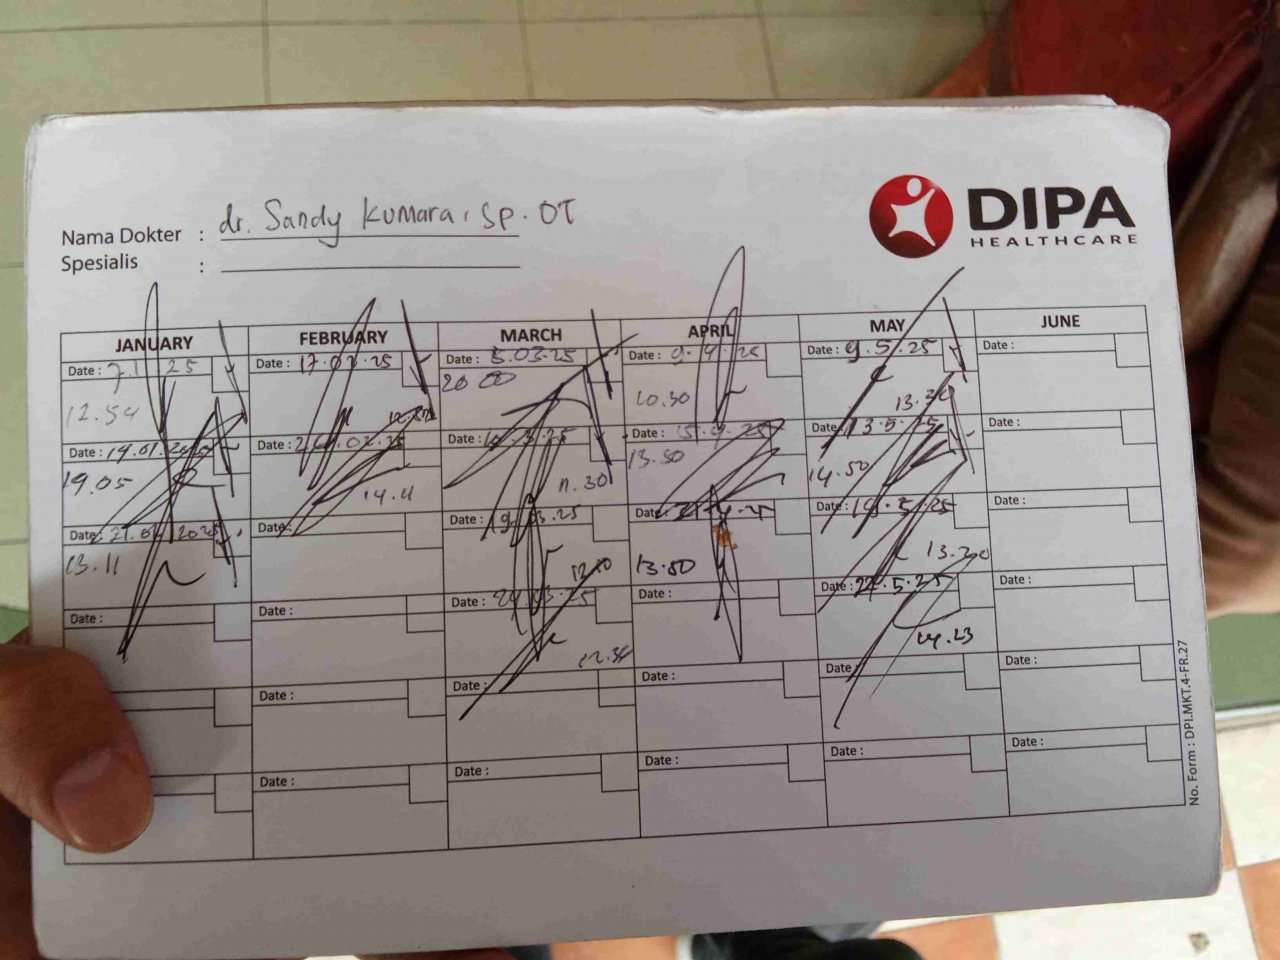 DIPA
HEALTHCARE
Nama Dokter : dr. Sandy Kumara, Sp. OT
Spesialis :
JANUARY FEBRUARY MARCH APRIL MAY JUNE
Date : 7.1.25 Date : 17.02.25 Date : 5.03.25 Date : 9.4.25 Date : 9.5.25 Date :
12.54 20.00 10.30 13.20
Date : 19.01.2025 Date : 02.25 Date : 3.25 Date : 15.4.25 Date : 13.5.25 Date :
19.05 14.11 11.30 13.50 14.50
Date : 21.01.2025 Date : Date : 19.03.25 Date : 4.25 Date : 19.5.25 Date :
13.11 12.10 13.50 13.20
Date : Date : Date : 03.25 Date : Date : 22.5.25 Date :
12.34 14.23
Date : Date : Date : Date : Date :
Date : Date : Date : Date : Date :
No. Form : DPI.MKT.4-FR.27